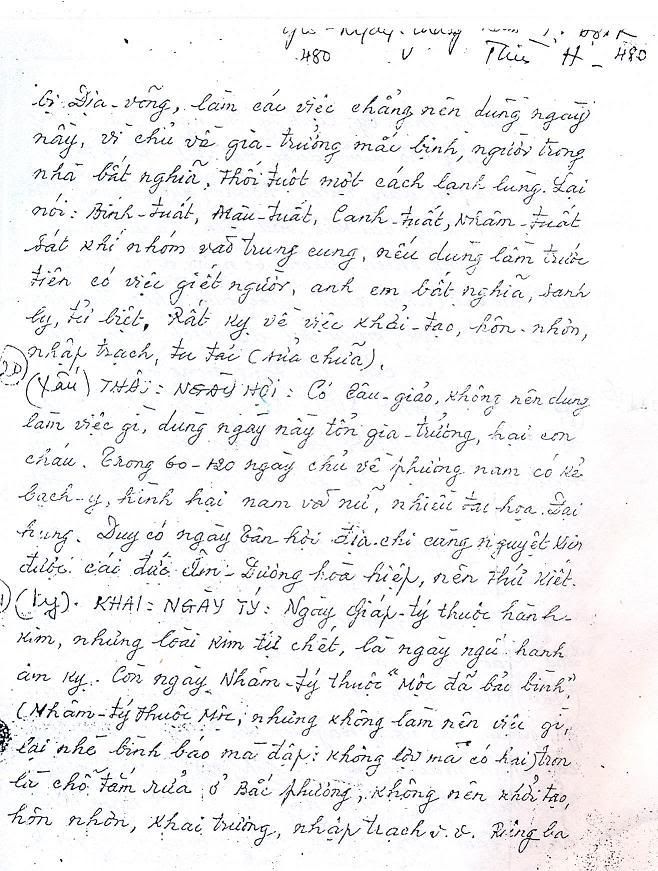 480 V Thìn H - 480
bị Địa-võng, làm các việc chẳng nên dùng ngày
nầy, vì chủ về gia-trưởng mắc bịnh, người trong
nhà bất nghĩa, thối tuột một cách lạnh lùng. Lại
nói: Bính-tuất, Mậu-tuất, Canh-tuất, Nhâm-tuất
Sát khí nhóm vào trung cung, nếu dùng làm trước
tiên có việc giết người, anh em bất nghĩa, sanh
ly, tử biệt. Rất kỵ về việc khởi-tạo, hôn-nhơn,
nhập trạch, tu tác (sửa chữa).
(Xấu) THÂU: NGÀY HỢI: Có Câu-giảo, không nên dùng
làm việc gì, dùng ngày nầy tổn gia-trưởng, hại con
cháu. Trong 60-120 ngày chủ về phương nam có kẻ
bạch-y, hình hại nam và nữ, nhiều tai họa. Đại
hung. Duy có ngày Tân hợi địa-chi cùng nguyệt kiến
được cái đức Âm-Dương hòa hiệp, nên thứ kiết.
(Kỵ). KHAI: NGÀY TÝ: Ngày Giáp-tý thuộc hành-
Kim, nhưng loài Kim tự chết, là ngày ngũ hành
âm kỵ. Còn ngày Nhâm-tý thuộc "Mộc đã bảo bình",
(Nhâm-tý thuộc Mộc, nhưng không làm nên việc gì,
lại nhè bình báo mà đập: không lợi mà có hại) trên
là chỗ tắm rửa ở Bắc phương, không nên khởi tạo,
hôn nhơn, khai trương, nhập trạch v.v. Riêng ba